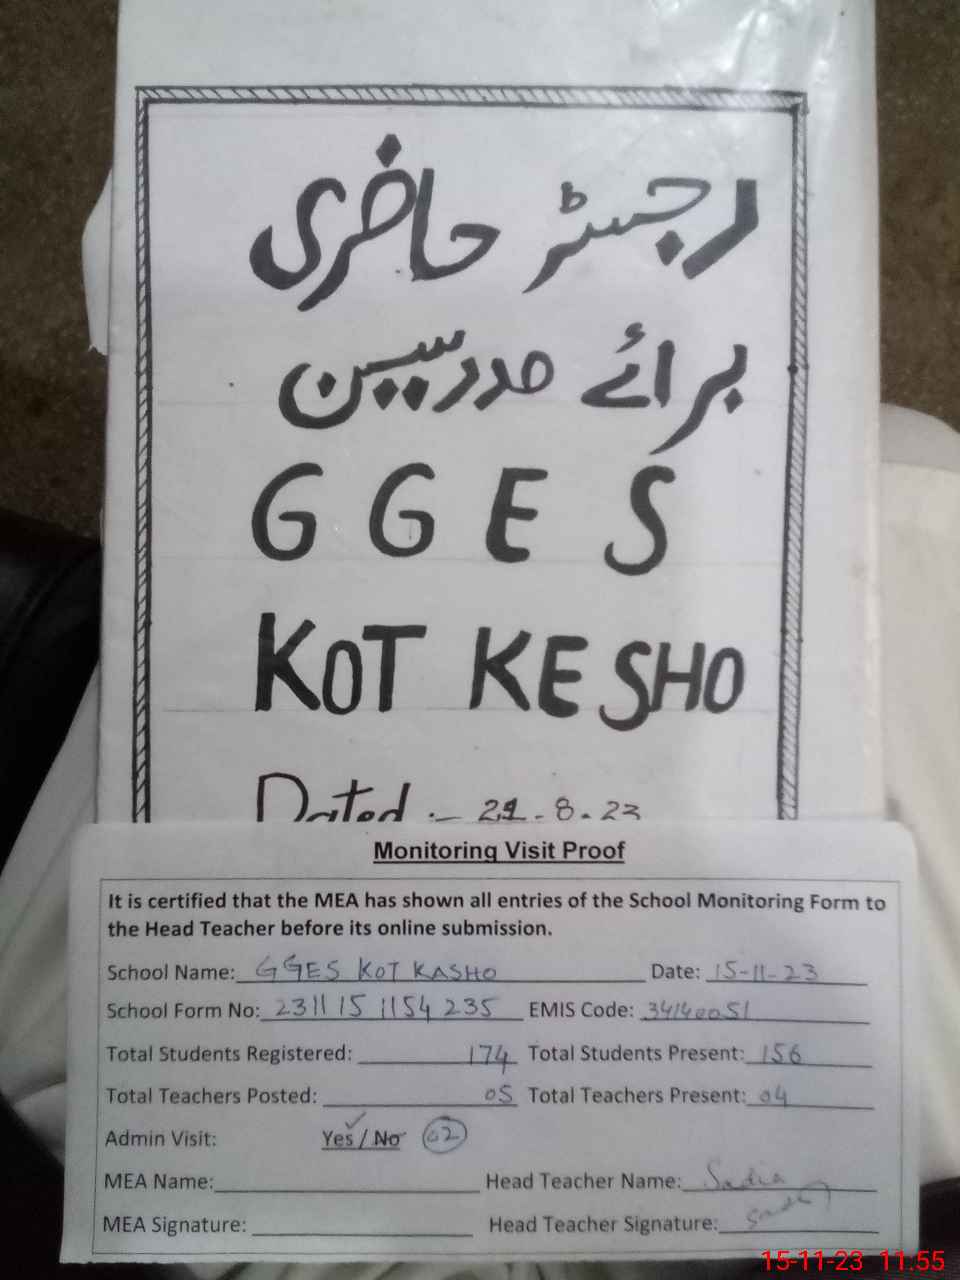 رجسٹر حاضری
برائے مدرسین
G G E S
KOT KESHO
Dated :- 21-8-23
Monitoring Visit Proof
It is certified that the MEA has shown all entries of the School Monitoring Form to
the Head Teacher before its online submission.
School Name: GGES KOT KASHO Date: 15-11-23
School Form No: 2311 15 1154 235 EMIS Code: 34140051
Total Students Registered: 174 Total Students Present: 156
Total Teachers Posted: 05 Total Teachers Present: 04
Admin Visit: Yes / No 02
MEA Name: Head Teacher Name: Sadia
MEA Signature: Head Teacher Signature:
15-11-23 11:55